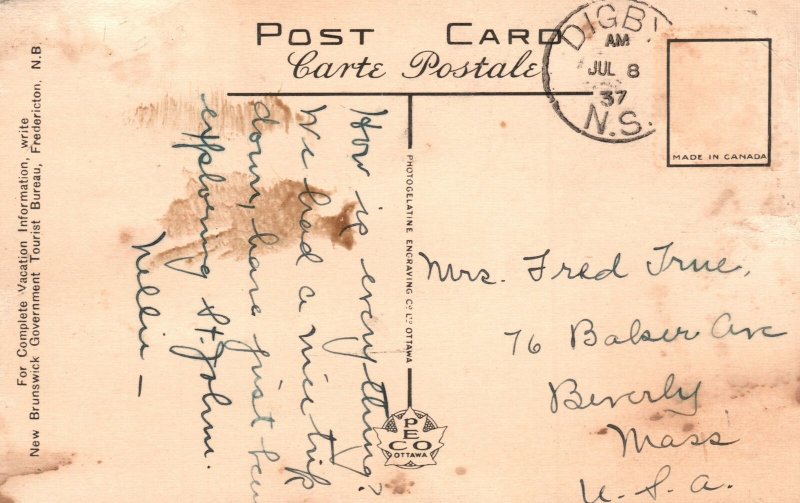 POST CARD
Carte Postale
DIGBY
AM
JUL 8
37
N.S.
MADE IN CANADA
For Complete Vacation Information, write
New Brunswick Government Tourist Bureau, Fredericton, N.B
How is everything?
We had a nice trip
down, have just been
exploring St. John.
Nellie —
PHOTOGELATINE ENGRAVING CO. LD OTTAWA
PECO
OTTAWA
Mrs. Fred True,
76 Balser Ave
Beverly
Mass
U.S.A.